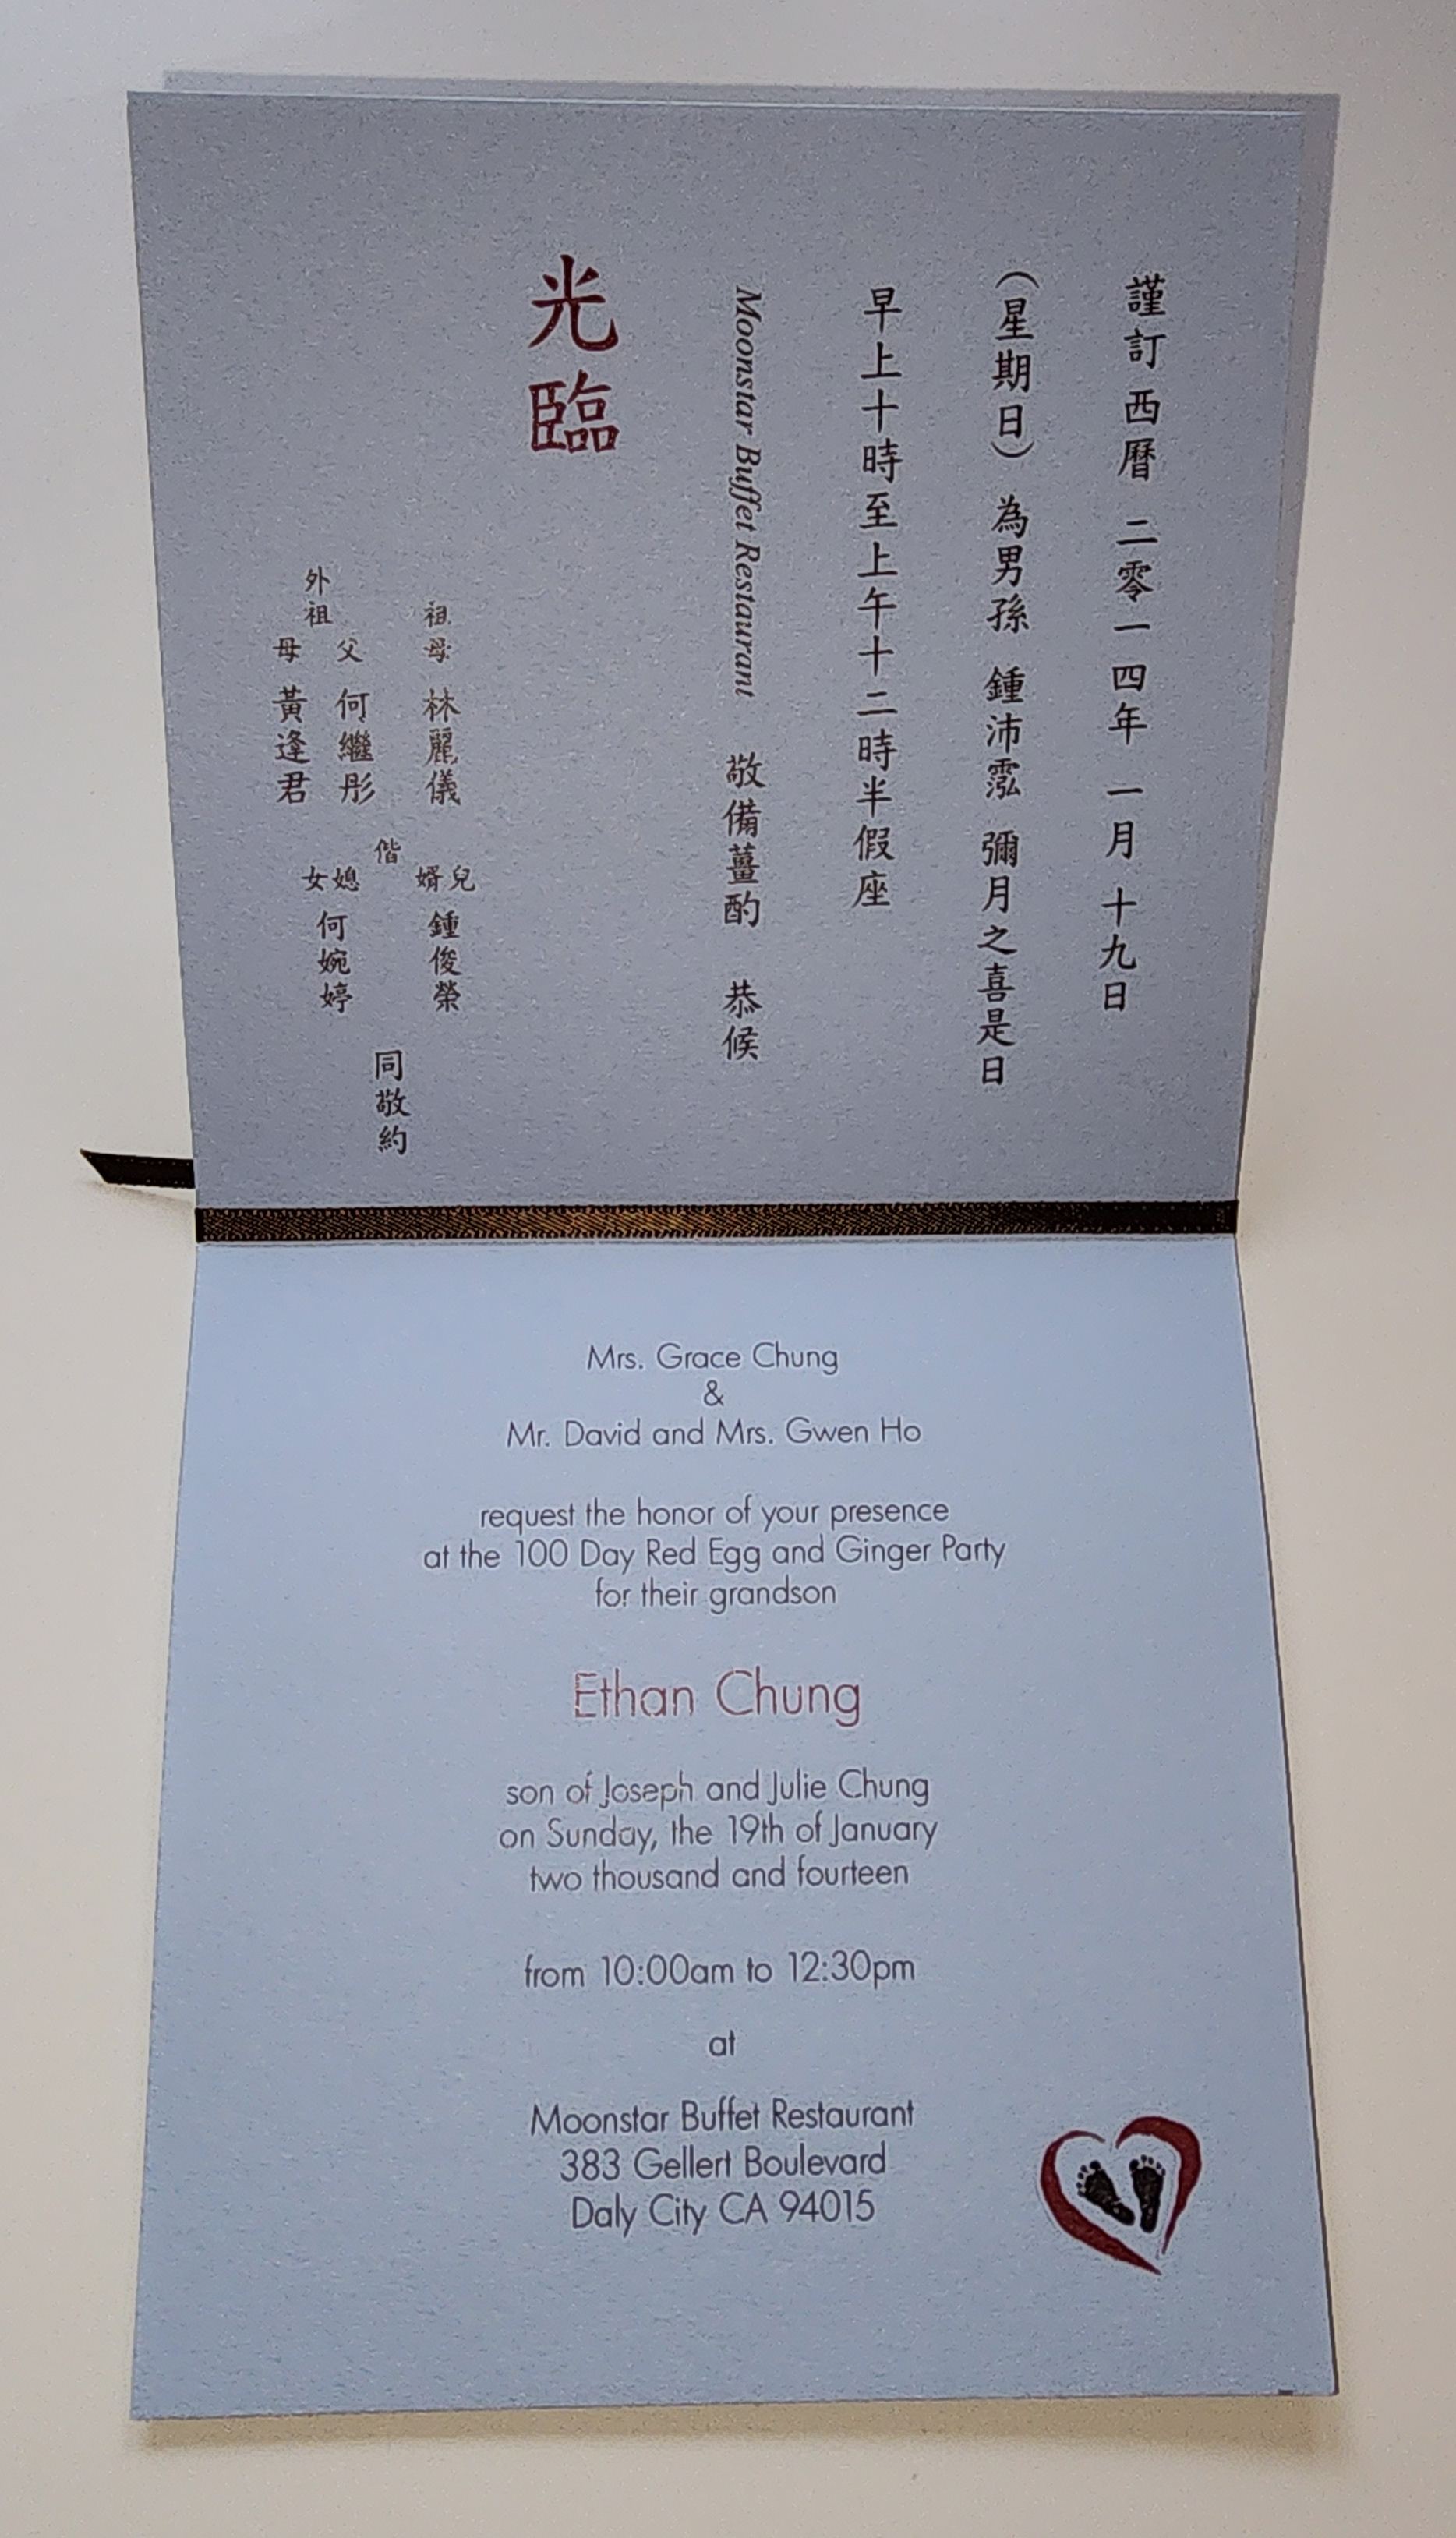 謹訂西曆 二零一四年 一月 十九日
（星期日）為男孫 鍾沛霐 彌月之喜是日
早上十時至上午十二時半假座
Moonstar Buffet Restaurant 敬備薑酌 恭候
光臨
祖母 林麗儀
外祖
父 何繼彤
母 黃逢君
偕
婿兒 鍾俊榮
女媳 何婉婷
同敬約
Mrs. Grace Chung
&
Mr. David and Mrs. Gwen Ho
request the honor of your presence
at the 100 Day Red Egg and Ginger Party
for their grandson
Ethan Chung
son of Joseph and Julie Chung
on Sunday, the 19th of January
two thousand and fourteen
from 10:00am to 12:30pm
at
Moonstar Buffet Restaurant
383 Gellert Boulevard
Daly City CA 94015